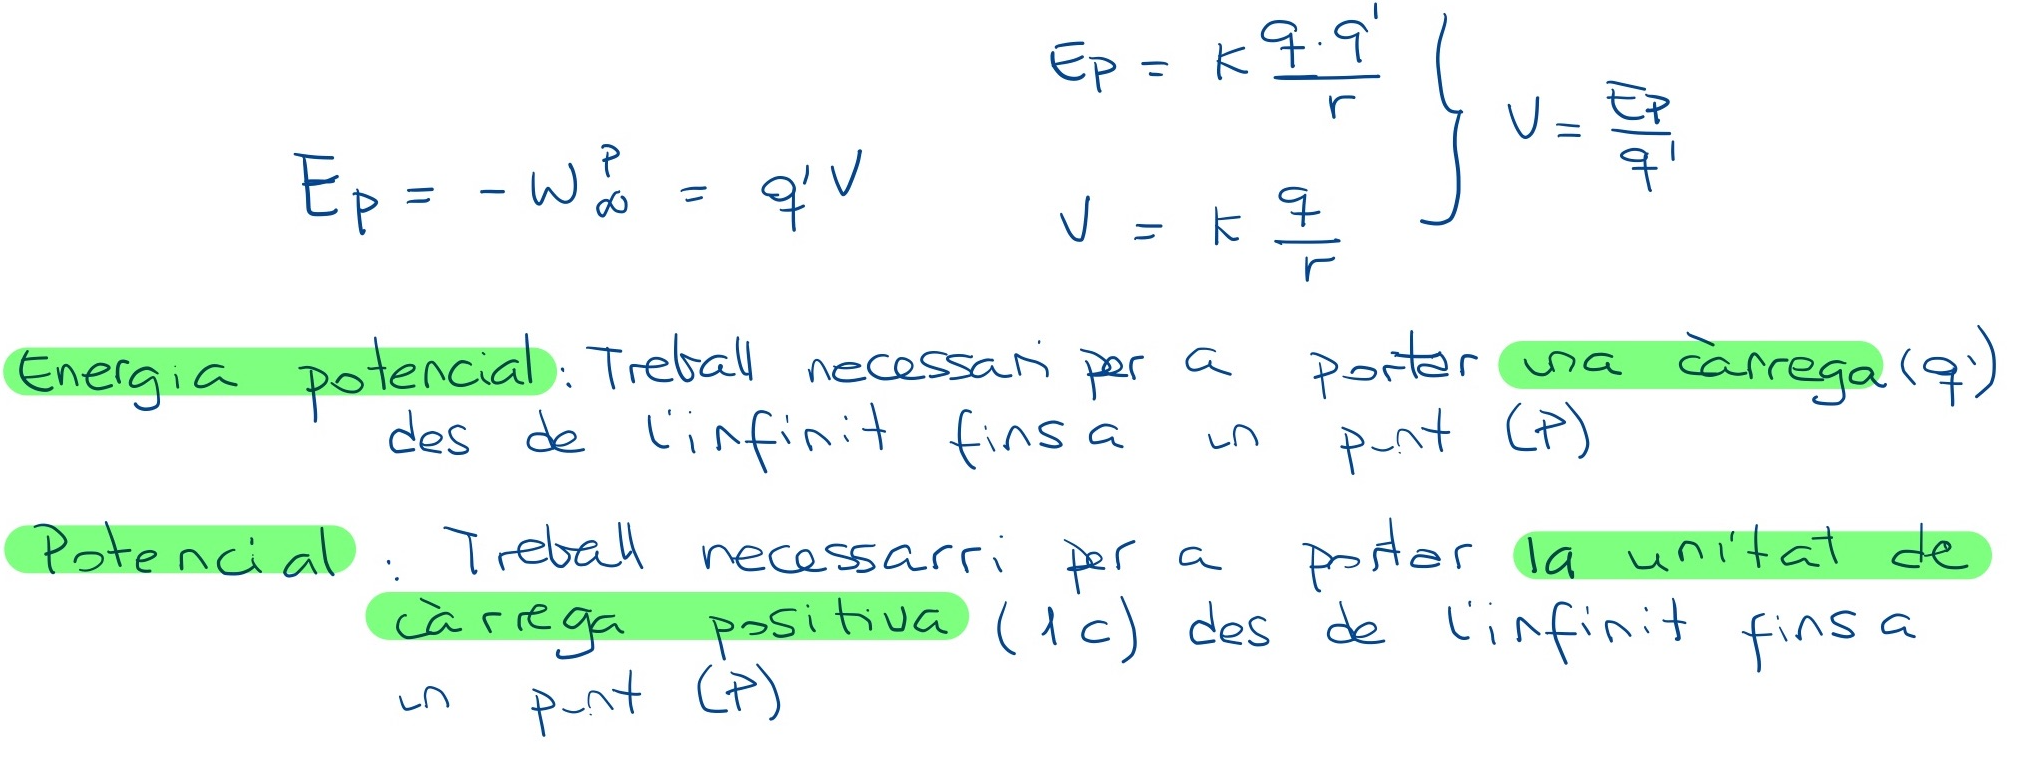 Ep = K q·q' / r
V = Ep / q'
Ep = - W∞^P = q'V
V = K q / r
Energia potencial: Treball necessari per a portar una càrrega (q')
des de l'infinit fins a un punt (P)
Potencial: Treball necessarri per a portar la unitat de
càrrega positiva (1C) des de l'infinit fins a
un punt (P)